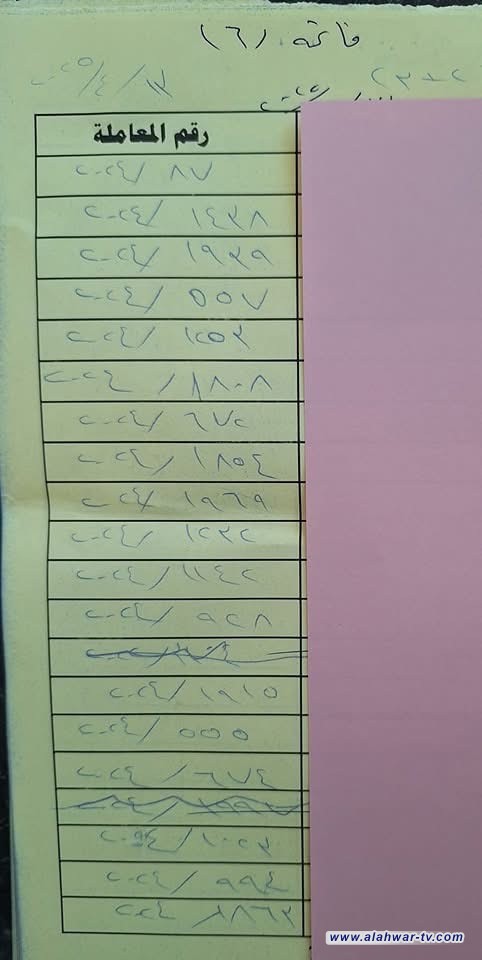 قائمة (٦)
٢٠٢٥/٤/١٧
رقم المعاملة
٨٧ /٢٠٢٤
١٤٣٨ /٢٠٢٤
١٩٣٩ /٢٠٢٤
٥٥٧ /٢٠٢٤
١٢٥٣ /٢٠٢٤
١٨٠٨ /٢٠٢٤
٦٧٢ /٢٠٢٤
١٨٥٤ /٢٠٢٤
١٩٦٩ /٢٠٢٤
١٢٣٢ /٢٠٢٤
١١٤٢ /٢٠٢٤
٩٢٨ /٢٠٢٤
١٩١٥ /٢٠٢٤
٥٥٥ /٢٠٢٤
٦٧٤ /٢٠٢٤
١٠٠٣ /٢٠٢٤
٩٩٤ /٢٠٢٤
١٨٦٣ ٢٠٢٤
www.alahwar-tv.com